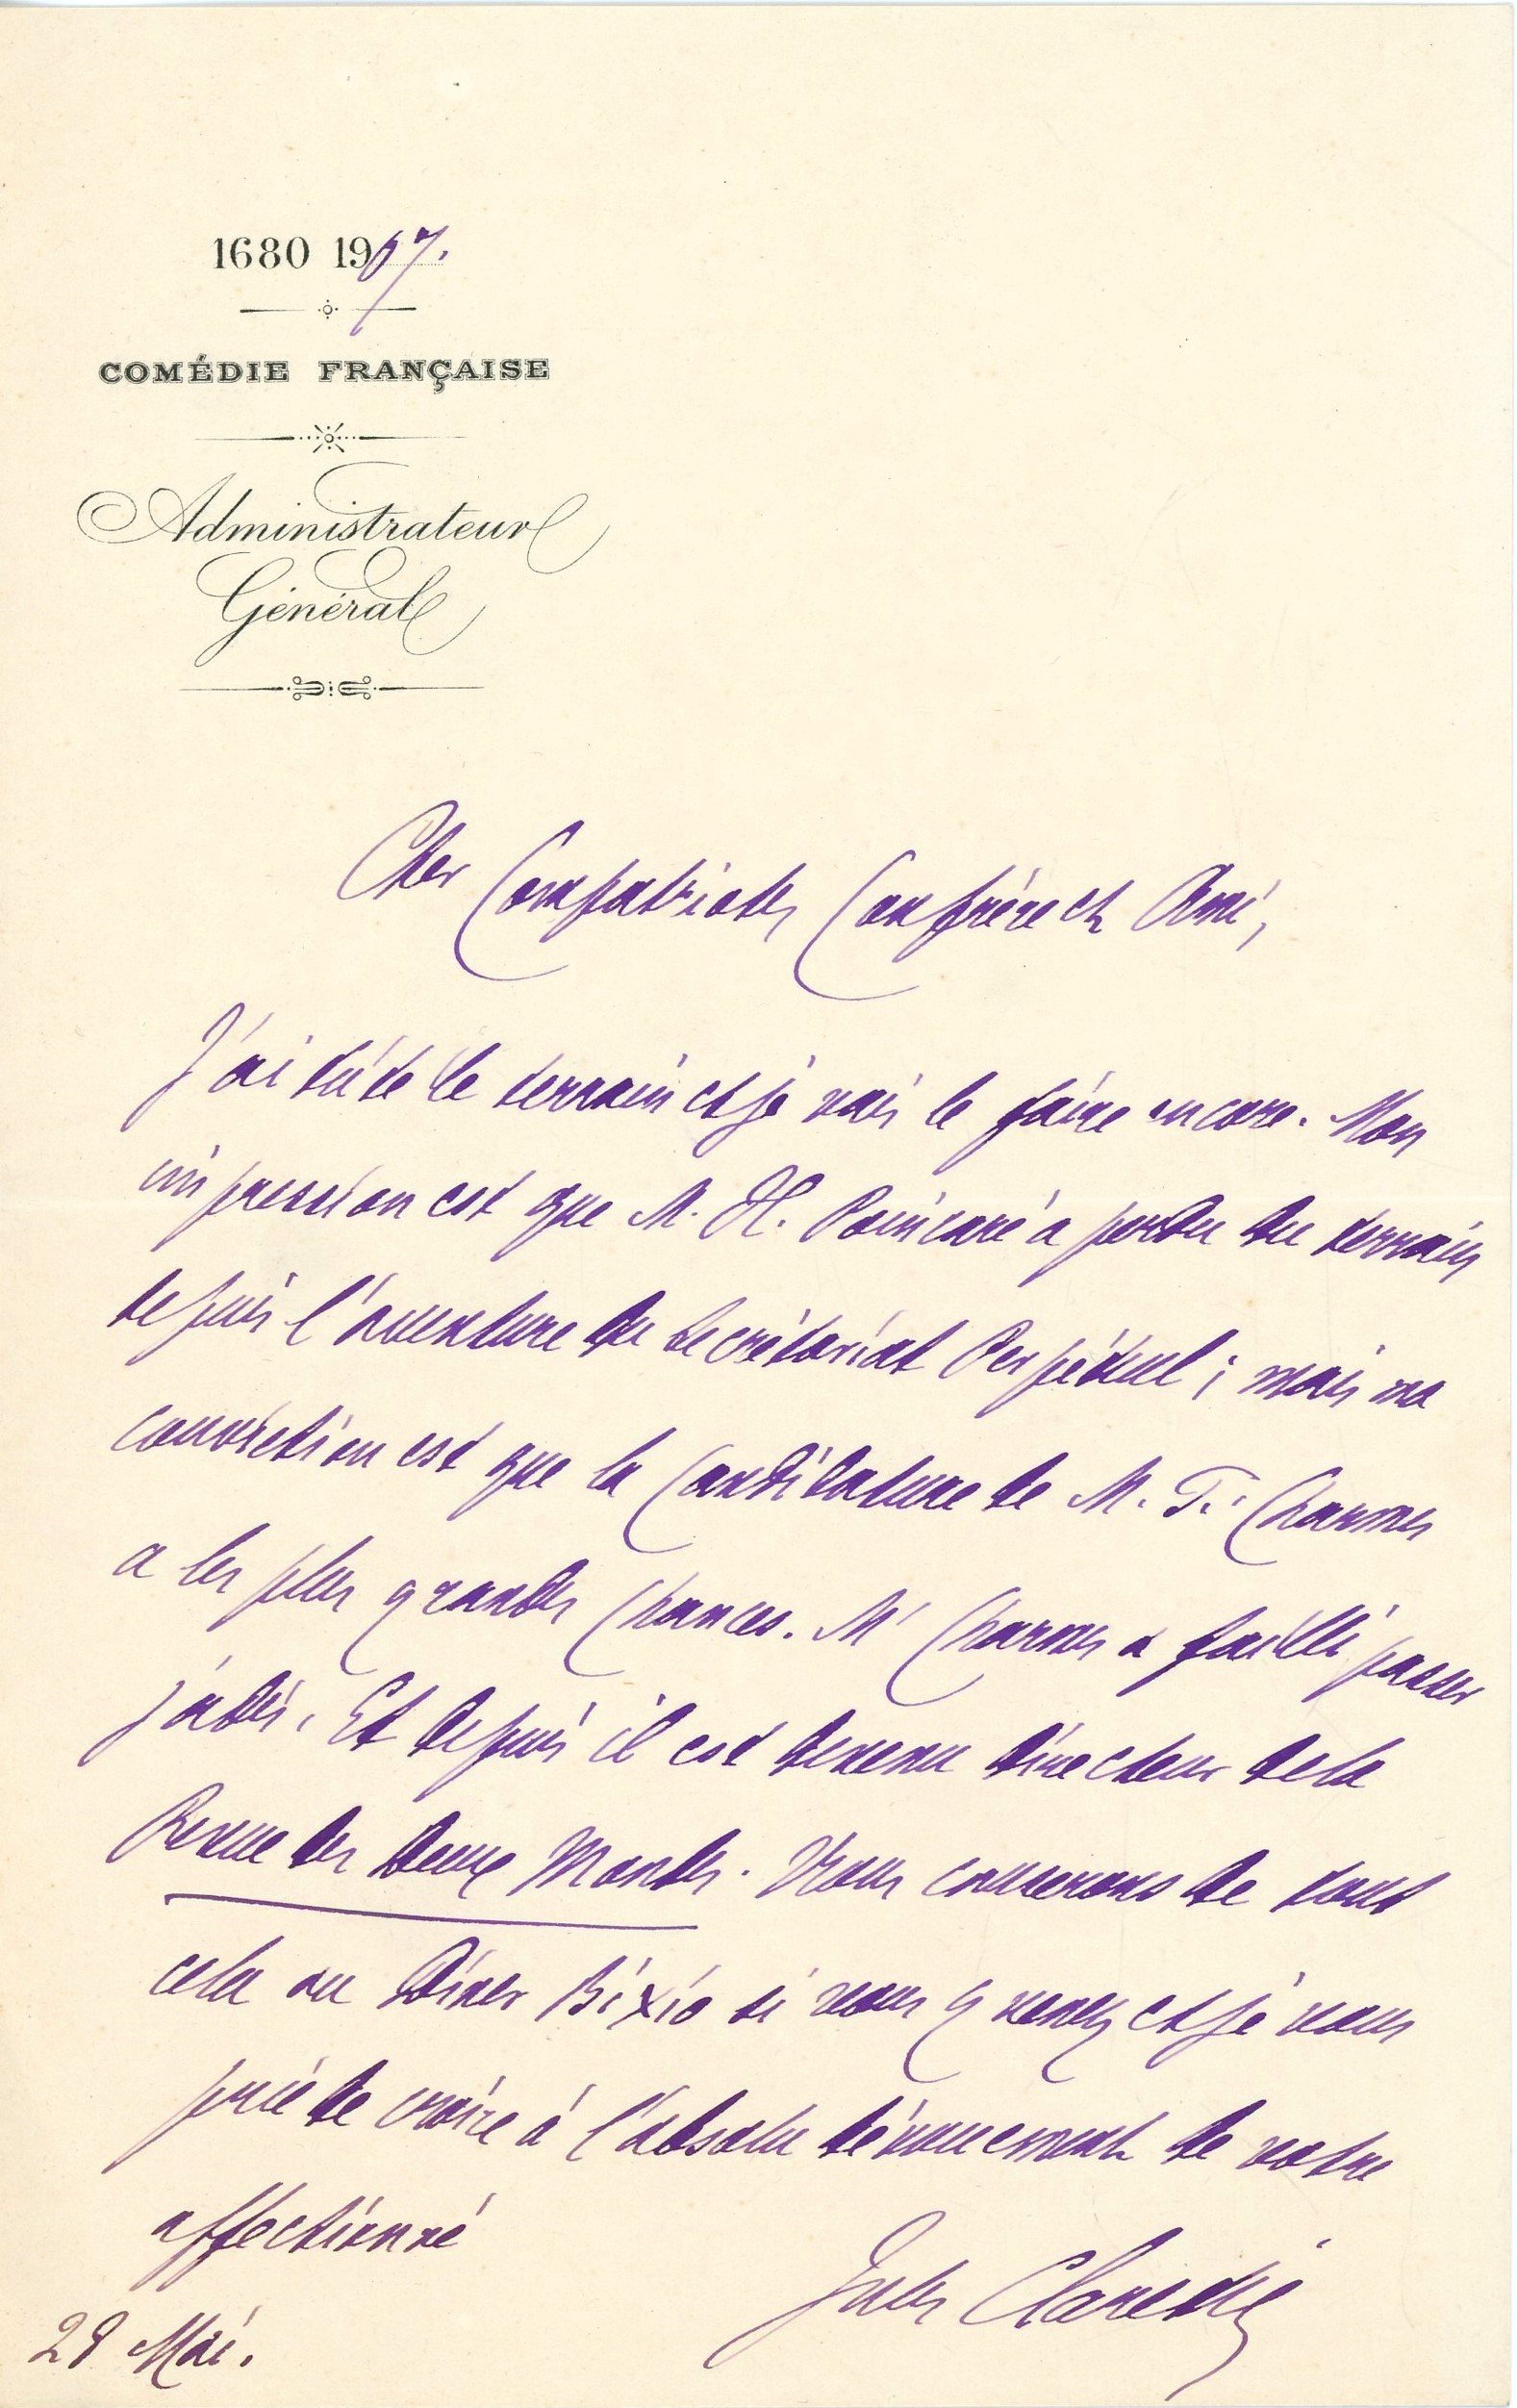 1680 1907.
COMÉDIE FRANÇAISE
Administrateur
Général
Cher Compatriote, Confrère et Ami,
J'ai tâté le terrain et je vais le faire encore. Mon
impression est que M. H. Poincaré a perdu du terrain
depuis l'aventure du Secrétariat Perpétuel ; mais ma
conviction est que la Candidature de M. F. Charmes
a les plus grandes chances. Mr Charmes a failli passer
jadis. Et depuis il est devenu directeur de la
Revue des Deux Mondes. Nous causerons de tout
cela au Dîner Bixio si vous y venez et je vous
prie de croire à l'absolu dévouement de votre
affectionné
Jules Claretie
28 Mai.